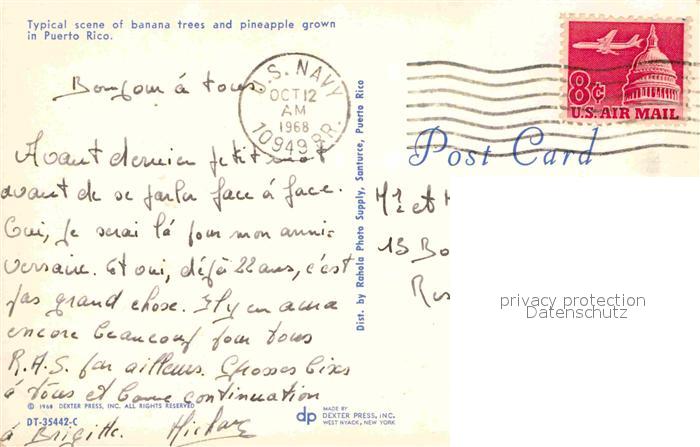 Typical scene of banana trees and pineapple grown
in Puerto Rico.
Bonjour à tous.
U.S. NAVY
OCT 12
AM
1968
10949 BR.
8¢
U.S. AIR MAIL
Post Card
Avant dernier petit mot
avant de se parler face à face.
Oui, je serai là pour mon anni-
versaire. Et oui, déjà 22 ans, c'est
pas grand chose. Il y en aura
encore beaucoup pour tous
R.A.S. par ailleurs. Grosses bises
à tous et bonne continuation
à Brigitte.
Dist. by Rahola Photo Supply, Santurce, Puerto Rico
Mr et M
13 Bo
privacy protection
Datenschutz
© 1968 DEXTER PRESS, INC. ALL RIGHTS RESERVED
DT-35442-C
dp
MADE BY
DEXTER PRESS, INC.
WEST NYACK, NEW YORK